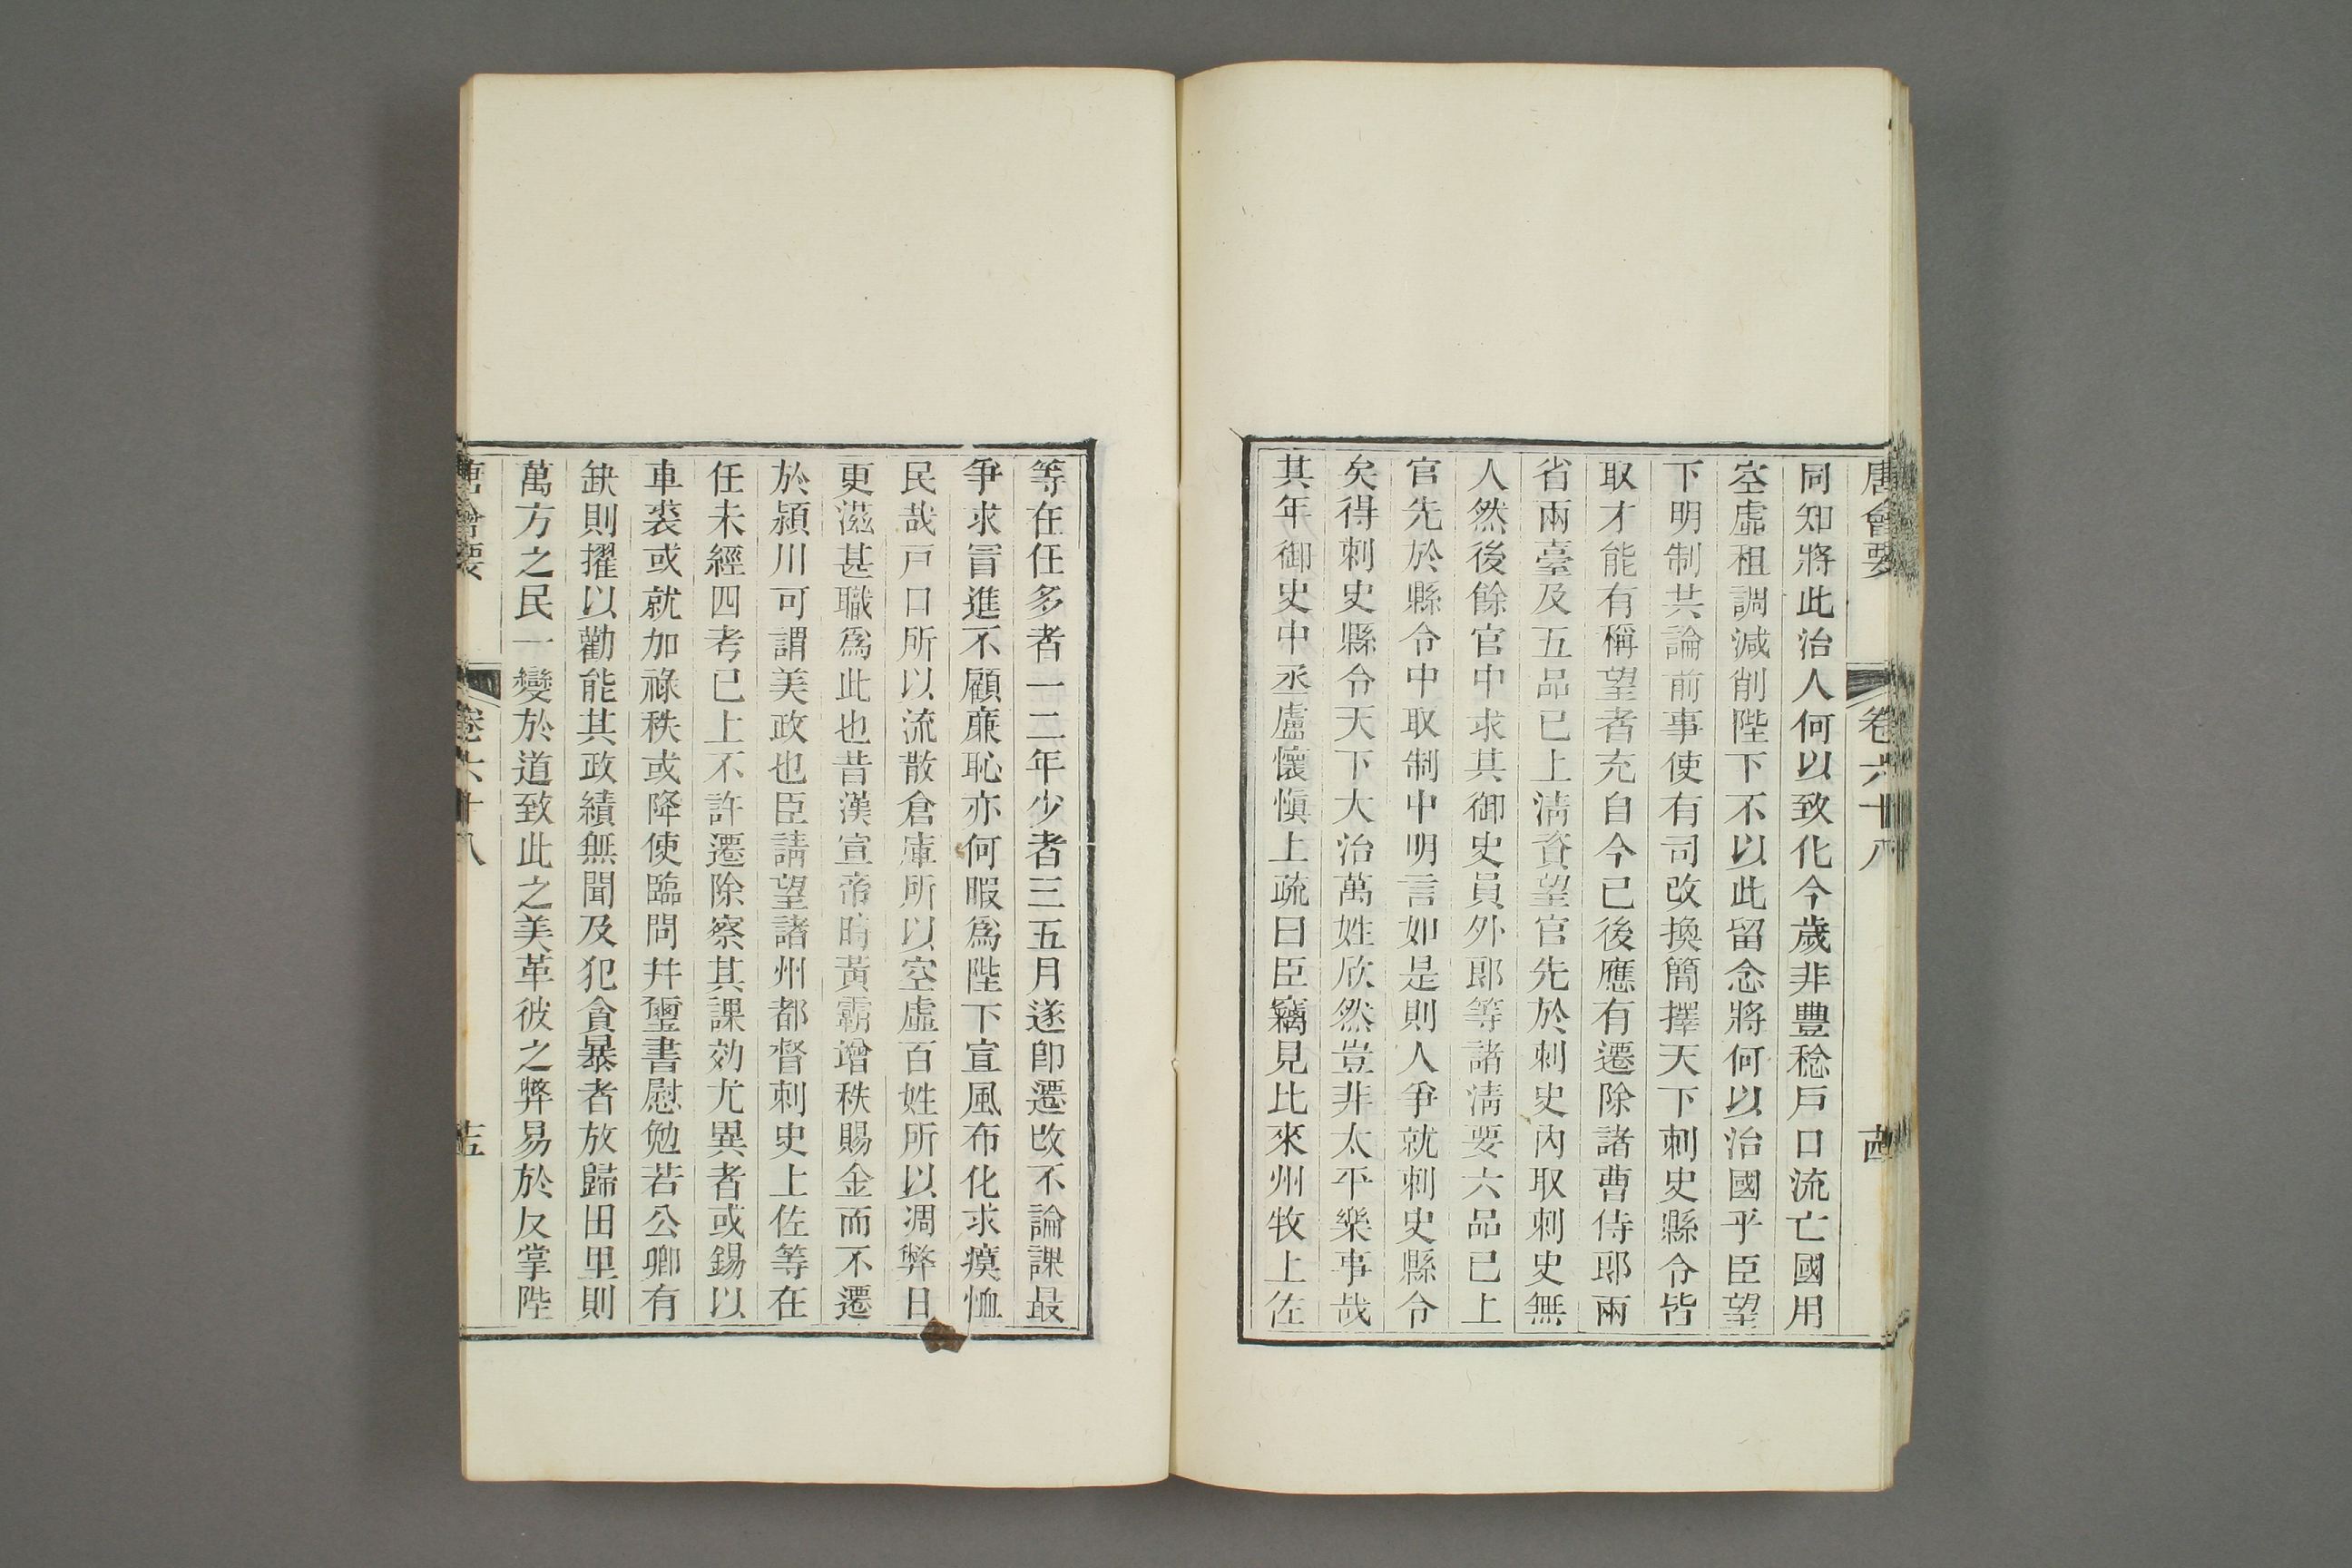 唐會要 卷六十八 茜
同知將此治人何以致化今歲非豐稔戸口流亡國用
空虛租調減削陛下不以此留念將何以治國乎臣望
下明制共論前事使有司改換簡擇天下刺史縣令皆
取才能有稱望者充自今已後應有遷除諸曹侍郎兩
省兩臺及五品已上淸資望官先於刺史內取刺史無
人然後餘官中求其御史員外郎等諸淸要六品已上
官先於縣令中取制中明言如是則人爭就刺史縣令
矣得刺史縣令天下大治萬姓欣然豈非太平樂事哉
其年御史中丞盧懷愼上疏曰臣竊見比來州牧上佐
等在任多者一二年少者三五月遂卽遷改不論課最
爭求冒進不顧廉恥亦何暇爲陛下宣風布化求瘼恤
民哉戸口所以流散倉庫所以空虛百姓所以凋弊日
更滋甚職爲此也昔漢宣帝時黃霸增秩賜金而不遷
於潁川可謂美政也臣請望諸州都督刺史上佐等在
任未經四考已上不許遷除察其課効尤異者或錫以
車裘或就加祿秩或降使臨問幷璽書慰勉若公卿有
缺則擢以勸能其政績無聞及犯貪暴者放歸田里則
萬方之民一變於道致此之美革彼之弊易於反掌陛
唐會要 卷六十八 十五